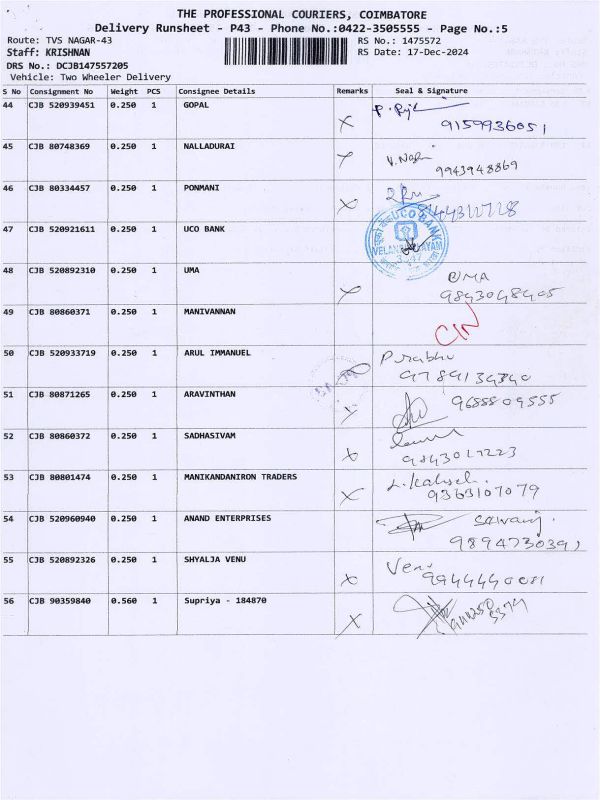 THE PROFESSIONAL COURIERS, COIMBATORE
Delivery Runsheet - P43 - Phone No.:0422-3505555 - Page No.:5
Route: TVS NAGAR-43 RS No.: 1475572
Staff: KRISHNAN RS Date: 17-Dec-2024
DRS No.: DCJB147557205
Vehicle: Two Wheeler Delivery
S No Consignment No Weight PCS Consignee Details Remarks Seal & Signature
44 CJB 520939451 0.250 1 GOPAL
9159936051
45 CJB 80748369 0.250 1 NALLADURAI
9943948869
46 CJB 80334457 0.250 1 PONMANI
47 CJB 520921611 0.250 1 UCO BANK UCO BANK
48 CJB 520892310 0.250 1 UMA UMA
49 CJB 80860371 0.250 1 MANIVANNAN
50 CJB 520933719 0.250 1 ARUL IMMANUEL Prabhu
51 CJB 80871265 0.250 1 ARAVINTHAN 9688809555
52 CJB 80860372 0.250 1 SADHASIVAM
53 CJB 80801474 0.250 1 MANIKANDANIRON TRADERS
9363107079
54 CJB 520960940 0.250 1 ANAND ENTERPRISES
55 CJB 520892326 0.250 1 SHYALJA VENU Venu
56 CJB 90359840 0.560 1 Supriya - 184870